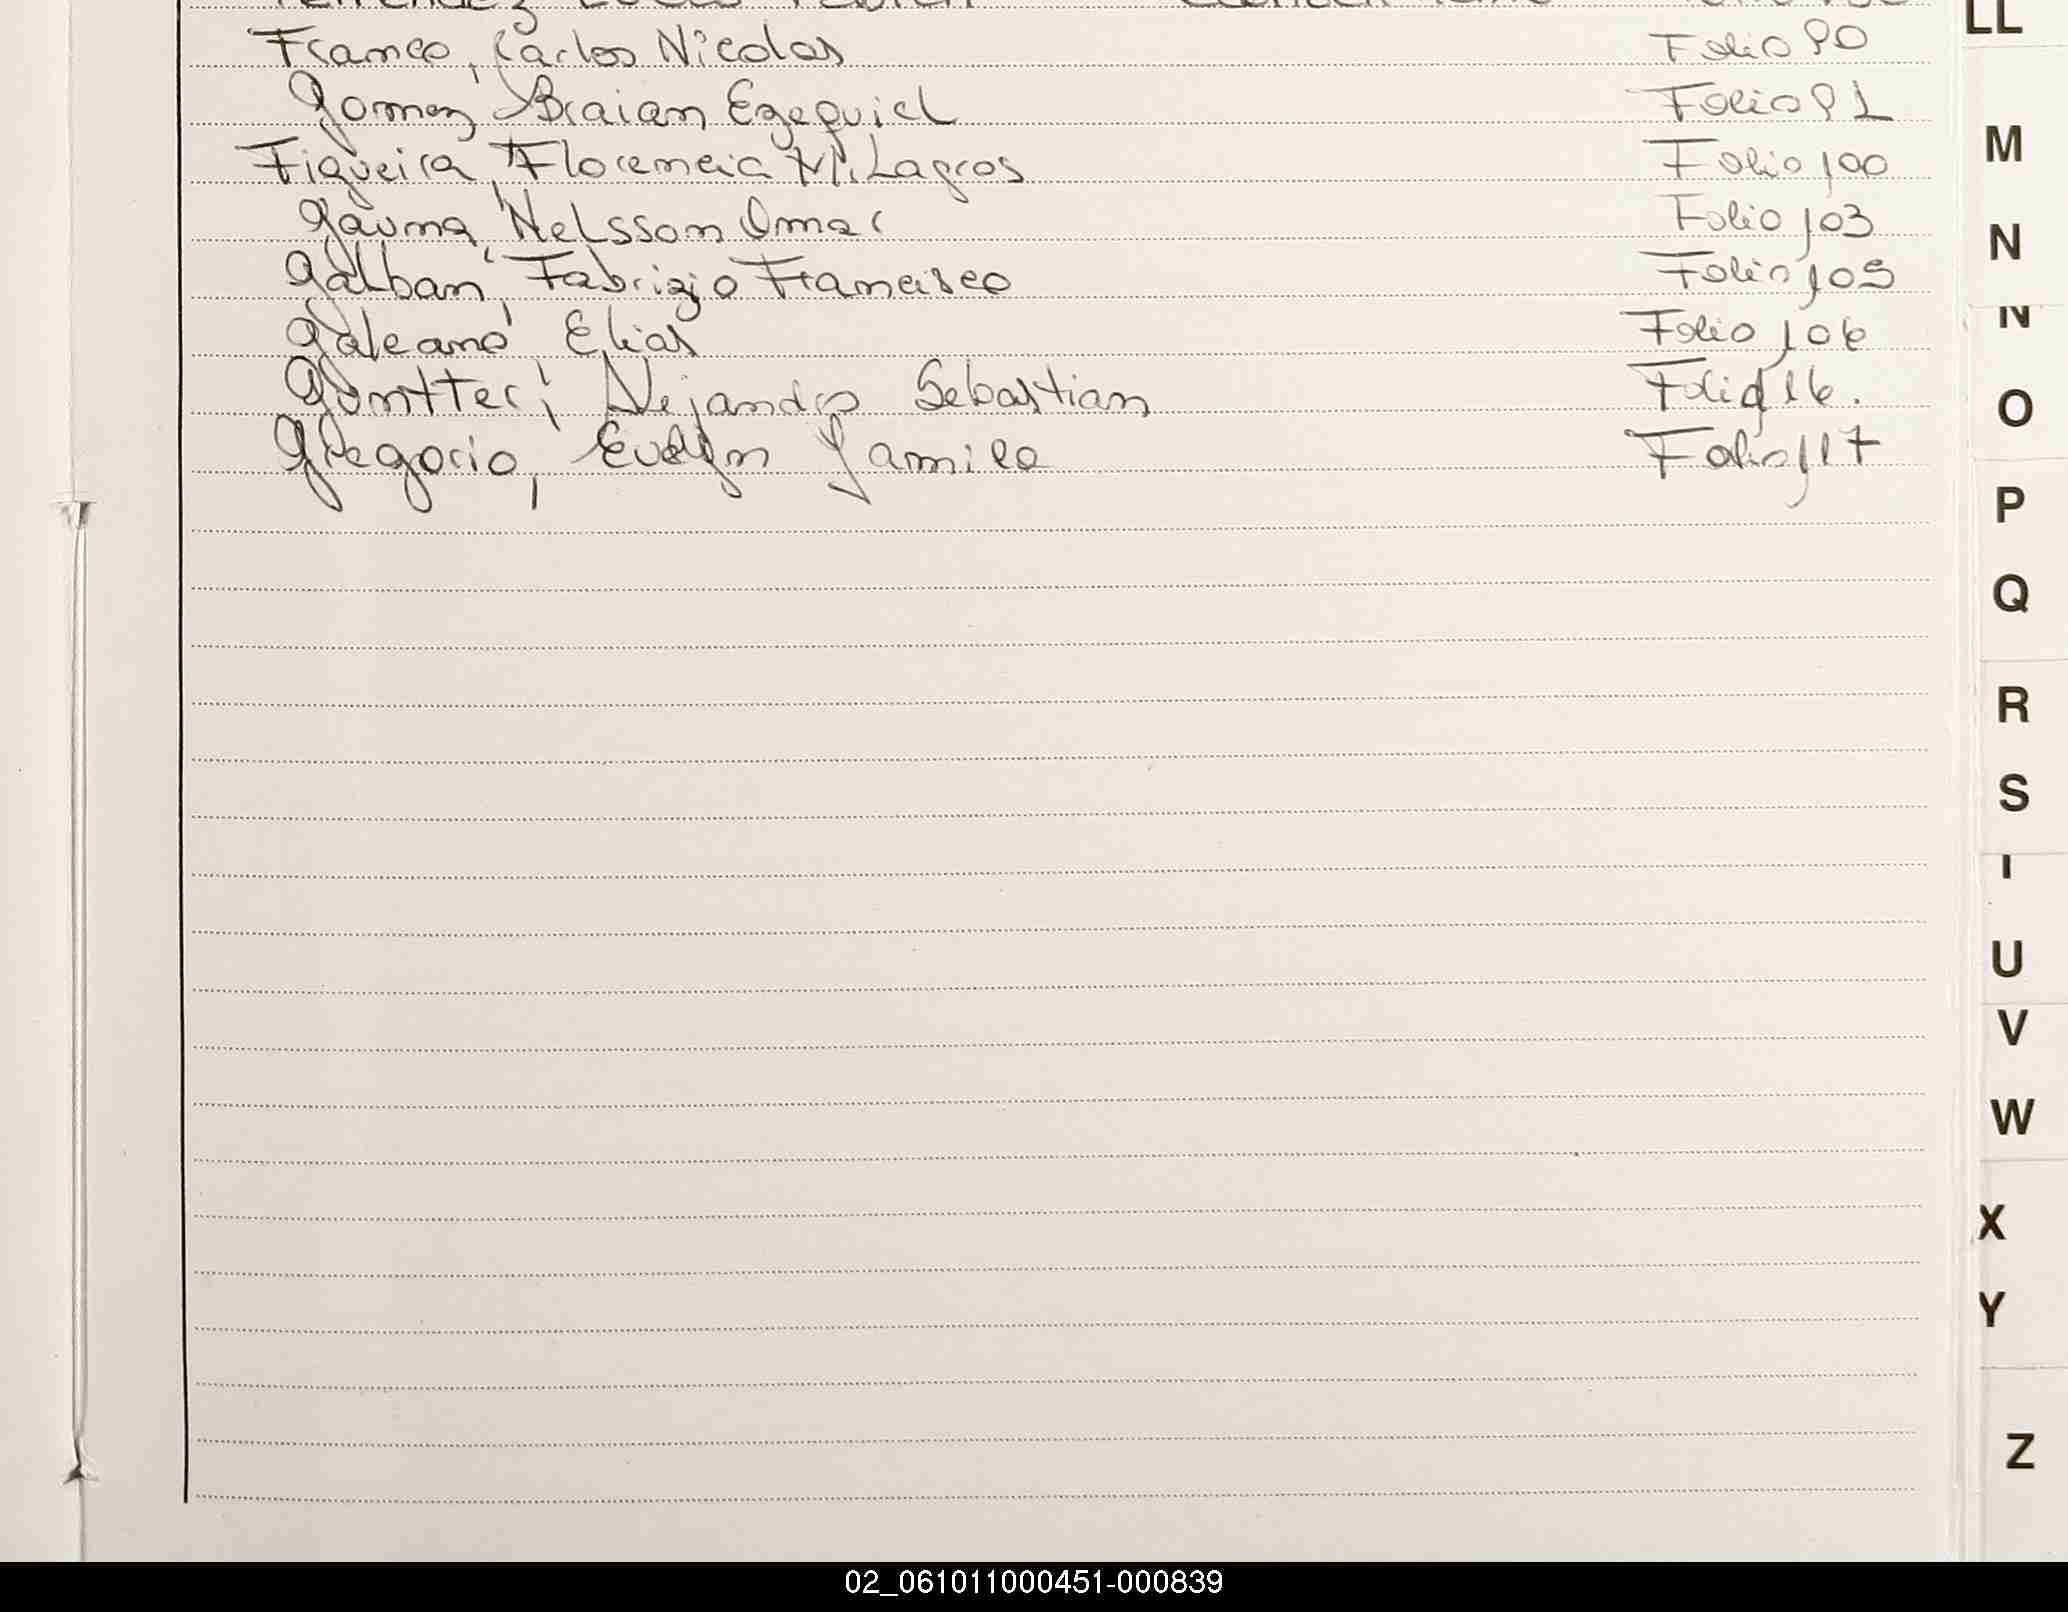 Franco, Carlos Nicolas Folio 90
Gomez, Braian Ezequiel Folio 91
Figueira, Florencia Milagros Folio 100
Gauna, Nelsson Omar Folio 103
Galban, Fabrizio Francisco Folio 105
Galeano, Elias Folio 106
Guntter, Alejandro Sebastian Folio 116.
Gregorio, Evelyn Yamila Folio 117
LL
M
N
N
O
P
Q
R
S
U
V
W
X
Y
Z
02_061011000451-000839